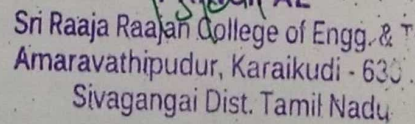 Sri Raaja Raajan College of Engg. & T
Amaravathipudur, Karaikudi - 630
Sivagangai Dist. Tamil Nadu